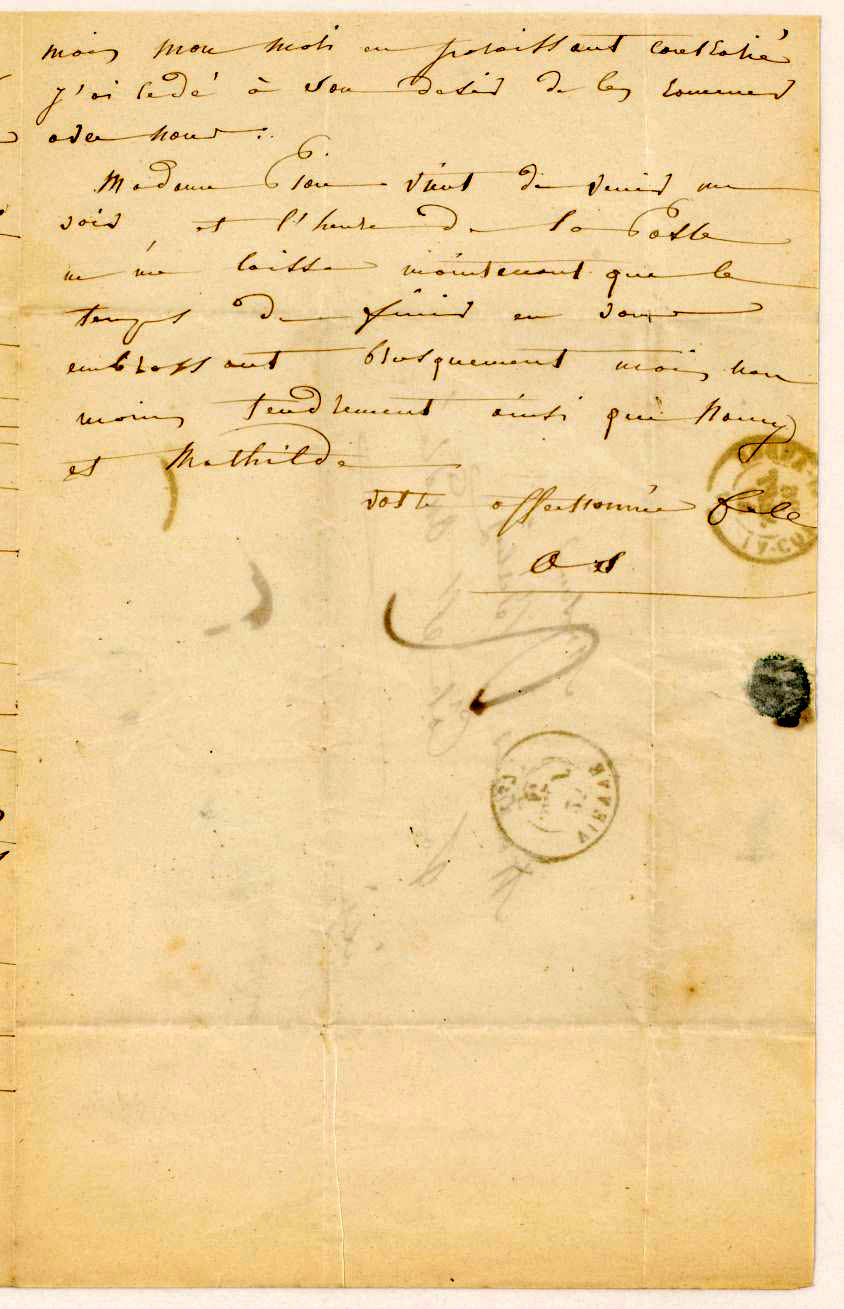 mais mon mari en paraissant contrarié
j'ai cédé à son desir de les ramener
avec nous.
Madame Pion vient de venir me
voir et l'heure de la Poste
ne me laisse maintenant que le
temps de finir en vous
embrassant brusquement mais non
moins tendrement ainsi que Nancy
et Mathilde
votre affectionnée fille